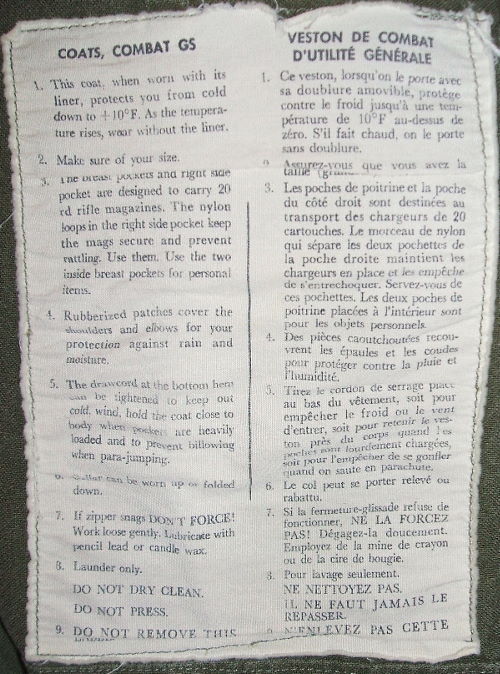 COATS, COMBAT GS
1. This coat, when worn with its
liner, protects you from cold
down to +10°F. As the tempera-
ture rises, wear without the liner.
2. Make sure of your size.
3. The breast pockets and right side
pocket are designed to carry 20
rd rifle magazines. The nylon
loops in the right side pocket keep
the mags secure and prevent
rattling. Use them. Use the two
inside breast pockets for personal
items.
4. Rubberized patches cover the
shoulders and elbows for your
protection against rain and
moisture.
5. The drawcord at the bottom hem
can be tightened to keep out
cold, wind, hold the coat close to
body when pockets are heavily
loaded and to prevent billowing
when para-jumping.
can be worn up or folded
down.
7. If zipper snags DON'T FORCE!
Work loose gently. Lubricate with
pencil lead or candle wax.
8. Launder only.
DO NOT DRY CLEAN.
DO NOT PRESS.
9. DO NOT REMOVE THIS
VESTON DE COMBAT
D'UTILITÉ GÉNÉRALE
1. Ce veston, lorsqu'on le porte avec
sa doublure amovible, protège
contre le froid jusqu'à une tem-
pérature de 10°F au-dessus de
zéro. S'il fait chaud, on le porte
sans doublure.
Assurez-vous que vous avez la
taille
3. Les poches de poitrine et la poche
du côté droit sont destinées au
transport des chargeurs de 20
cartouches. Le morceau de nylon
qui sépare les deux pochettes de
la poche droite maintient les
chargeurs en place et les empêche
de s'entrechoquer. Servez-vous de
ces pochettes. Les deux poches de
poitrine placées à l'intérieur sont
pour les objets personnels.
4. Des pièces caoutchoutées recou-
vrent les épaules et les coudes
pour protéger contre la pluie et
l'humidité.
5. Tirez le cordon de serrage placé
au bas du vêtement, soit pour
empêcher le froid ou le vent
d'entrer, soit pour retenir le ves-
ton près du corps quand les
poches sont lourdement chargées,
soit pour l'empêcher de se gonfler
quand on saute en parachute.
6. Le col peut se porter relevé ou
rabattu.
7. Si la fermeture-glissade refuse de
fonctionner, NE LA FORCEZ
PAS! Dégagez-la doucement.
Employez de la mine de crayon
ou de la cire de bougie.
8. Pour lavage seulement.
NE NETTOYEZ PAS.
IL NE FAUT JAMAIS LE
REPASSER.
9. N'ENLEVEZ PAS CETTE